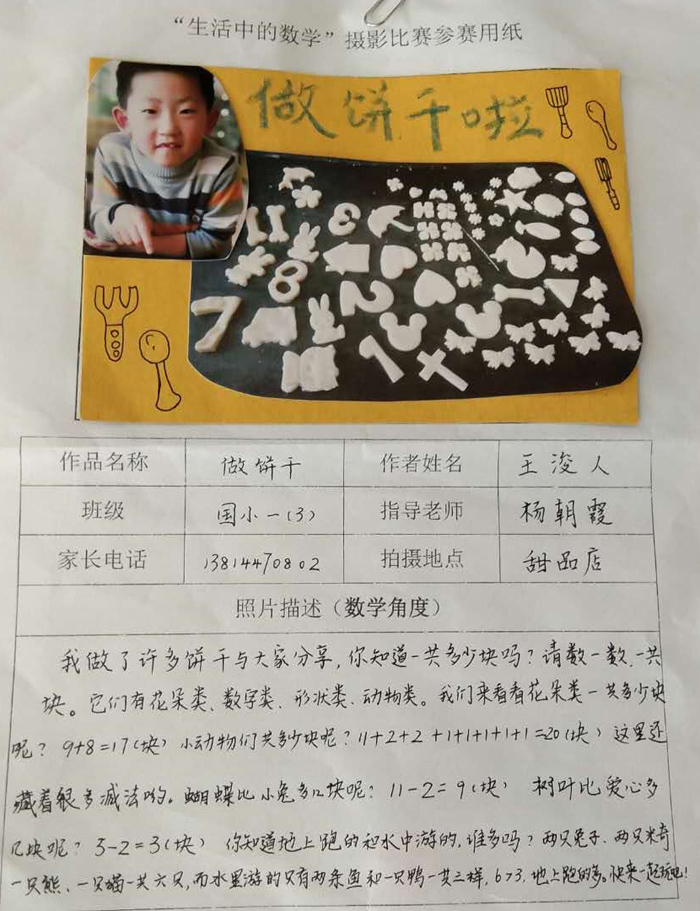 “生活中的数学”摄影比赛参赛用纸
做饼干啦
作品名称 做饼干 作者姓名 王浚人
班级 国小一(3) 指导老师 杨朝霞
家长电话 13814470802 拍摄地点 甜品店
照片描述（数学角度）
我做了许多饼干与大家分享，你知道一共多少块吗？请数一数，一共
块。它们有花朵类、数字类、形状类、动物类。我们来看看花朵类一共多少块
呢？9+8=17(块) 小动物们共多少块呢？11+2+2+1+1+1+1+1=20(块) 这里还
藏着很多减法哟。蝴蝶比小兔多几块呢？11-2=9(块) 树叶比爱心多
几块呢？5-2=3(块) 你知道地上跑的和水中游的，谁多吗？两只兔子、两只米奇
一只熊、一只猫一共六只，而水里游的只有两条鱼和一只鸭一共三样，6>3，地上跑的多。快来一起玩吧！